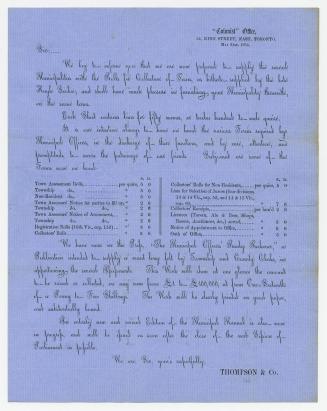 "Colonist" Office,
55, KING STREET, EAST, TORONTO.
May 31st, 1854.
Sir:
We beg to inform you that we are now prepared to supply the several
Municipalities with the Rolls for Collectors of Taxes, as hitherto supplied by the late
Hugh Scobie, and shall have much pleasure in furnishing your Municipality therewith,
on the usual terms.
Each Sheet contains lines for fifty names, or twelve hundred to each quire.
It is our intention always to have on hand the various Forms required by
Municipal Officers, in the discharge of their functions, and by care, attention, and
promptitude to merit the patronage of our friends. Subjoined are some of the
Forms now on hand:
s. d.
Town Assessment Rolls, per quire, 5 0
Township do., 5 0
Non-Resident do., 5 0
Town Assessors' Notice for parties to fill up, 2 6
Township do. do., 2 6
Town Assessors' Notice of Assessment, 2 6
Township do. do., 2 6
Registration Rolls (16th Vic., cap. 153) 5 0
Collectors' Rolls 5 0
s. d.
Collectors' Rolls for Non-Residents, per quire, 5 0
Lists for Selection of Jurors (four divisions
13 & 14 Vic., cap. 55, and 14 & 15 Vic.,
cap. 65, 7 6
Collectors' Receipts, 
Licences (Tavern, Ale & Beer, Shops,
Horses, Auctioneers, &c.,) assort., 5 0
Notice of Appointment to Office, 5 0
Oath of Office, 5 0
We have now in the Press, "The Municipal Officers' Ready Reckoner," a
Publication intended to supply a want long felt by Township and County Clerks, in
apportioning the several Assessments. This Work will show at one glance the amount
to be raised or collected, on any sum from £1 to £100,000, at from
of a Penny to Five Shillings. The Work will be clearly printed on good paper,
and substantially bound.
An entirely new and revised Edition of the Municipal Manual is also now
in progress, and will be issued as soon after the close of the next Session of
Parliament as possible.
We are, Sir, your's respectfully,
THOMPSON & Co.